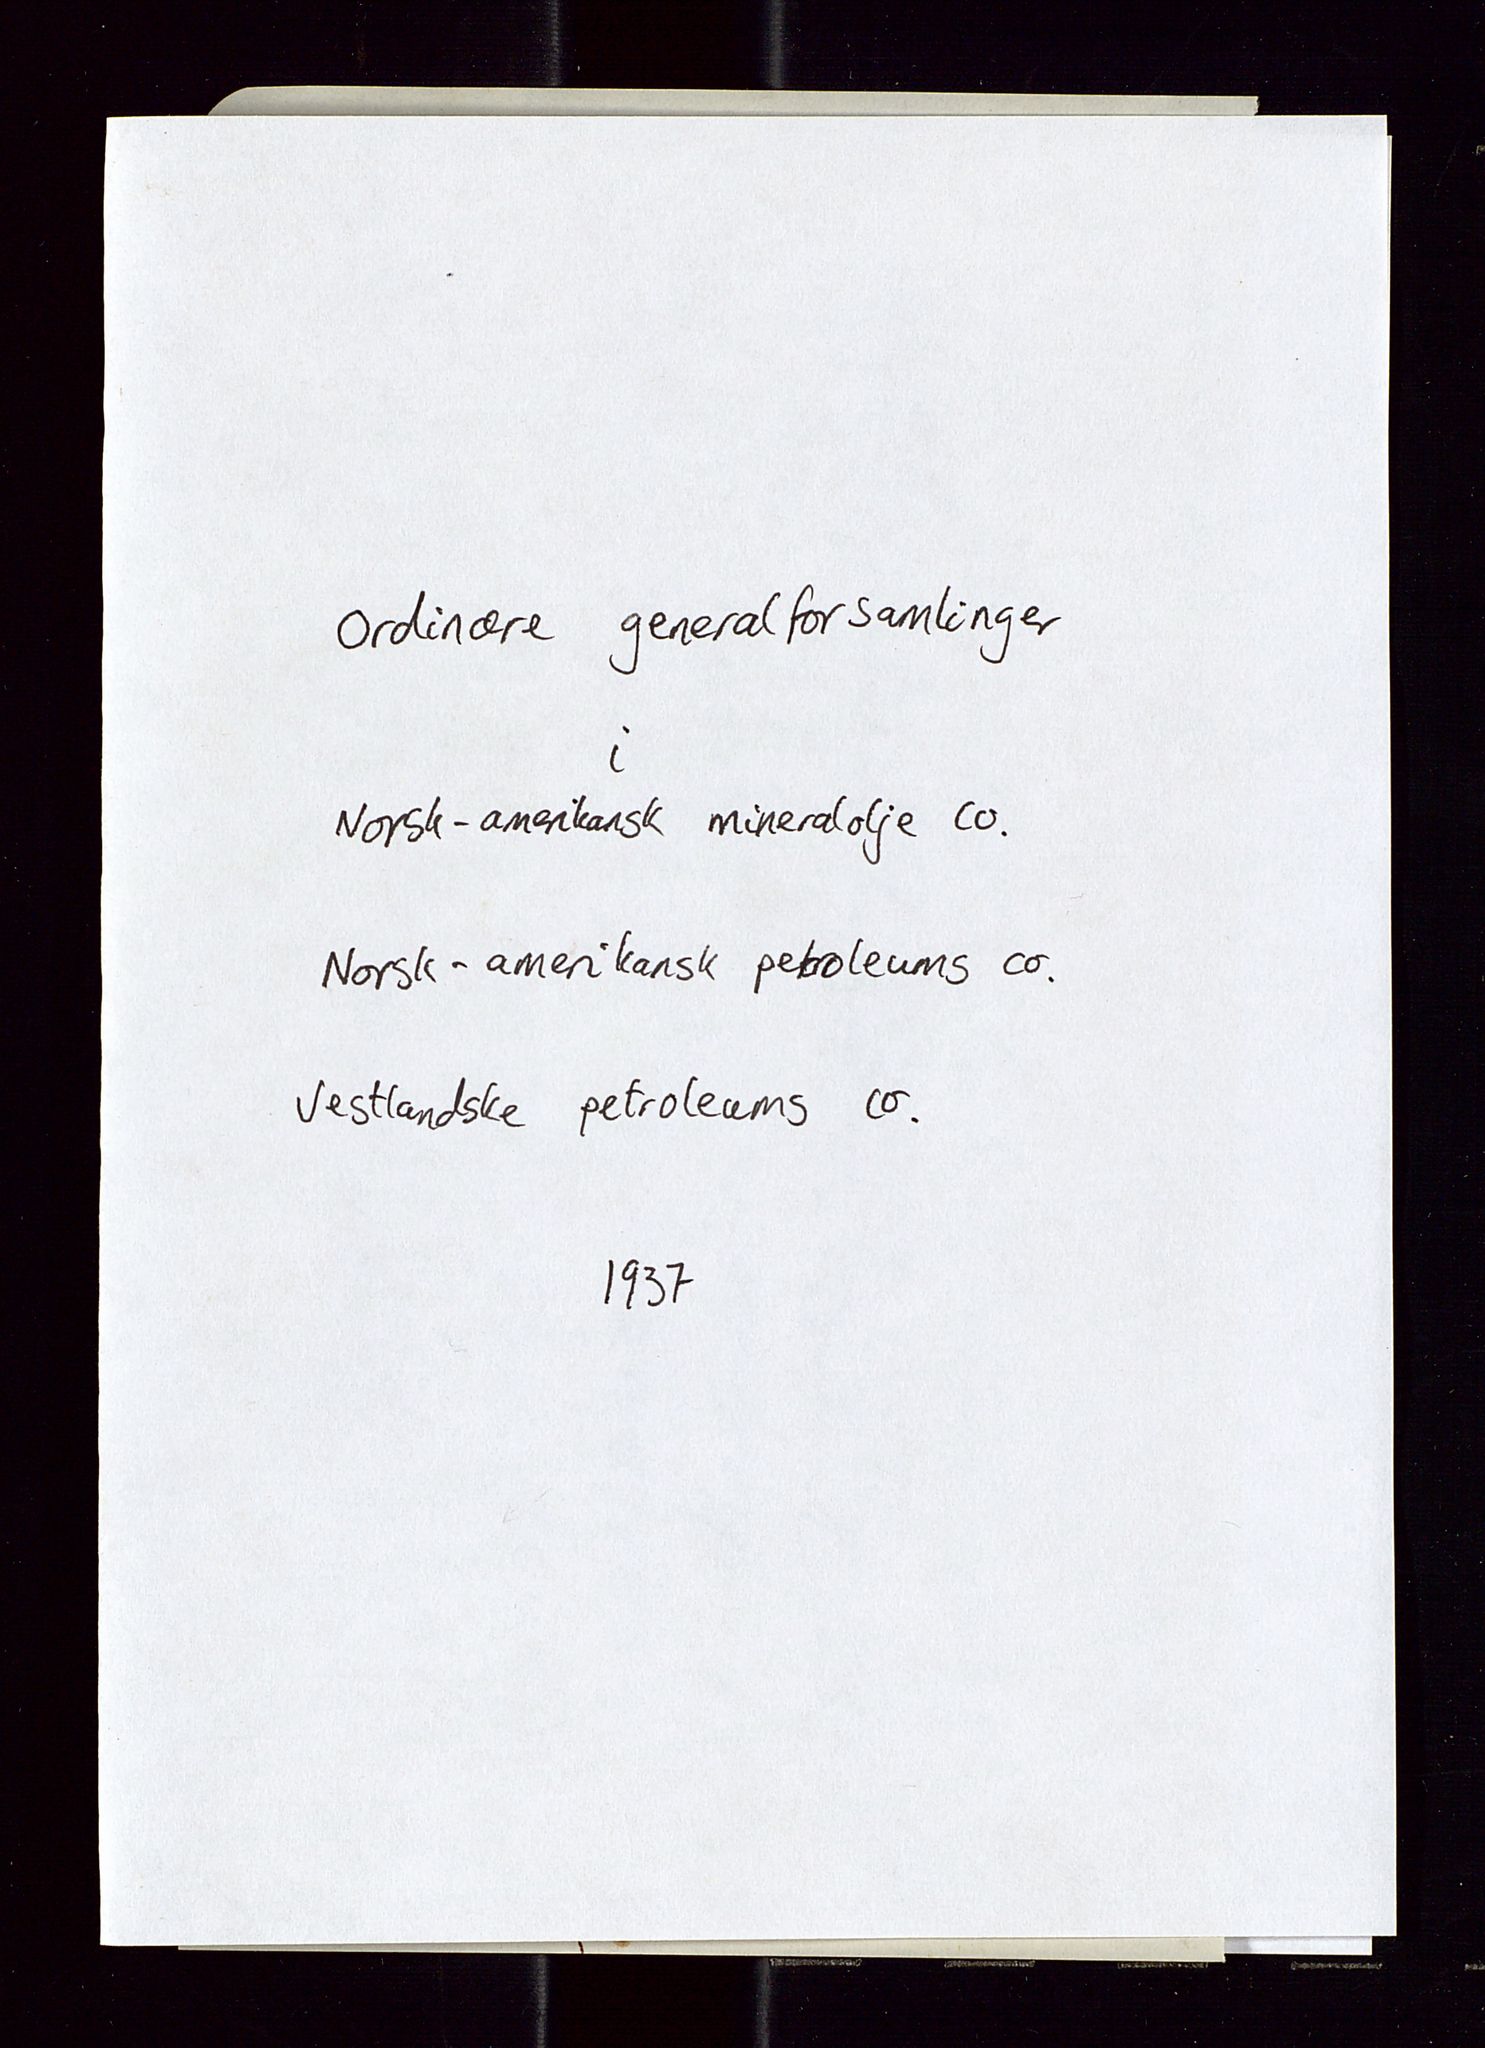 Ordinære generalforsamlinger
i
Norsk-amerikansk mineralolje co.
Norsk-amerikansk petroleums co.
Vestlandske petroleums co.
1937